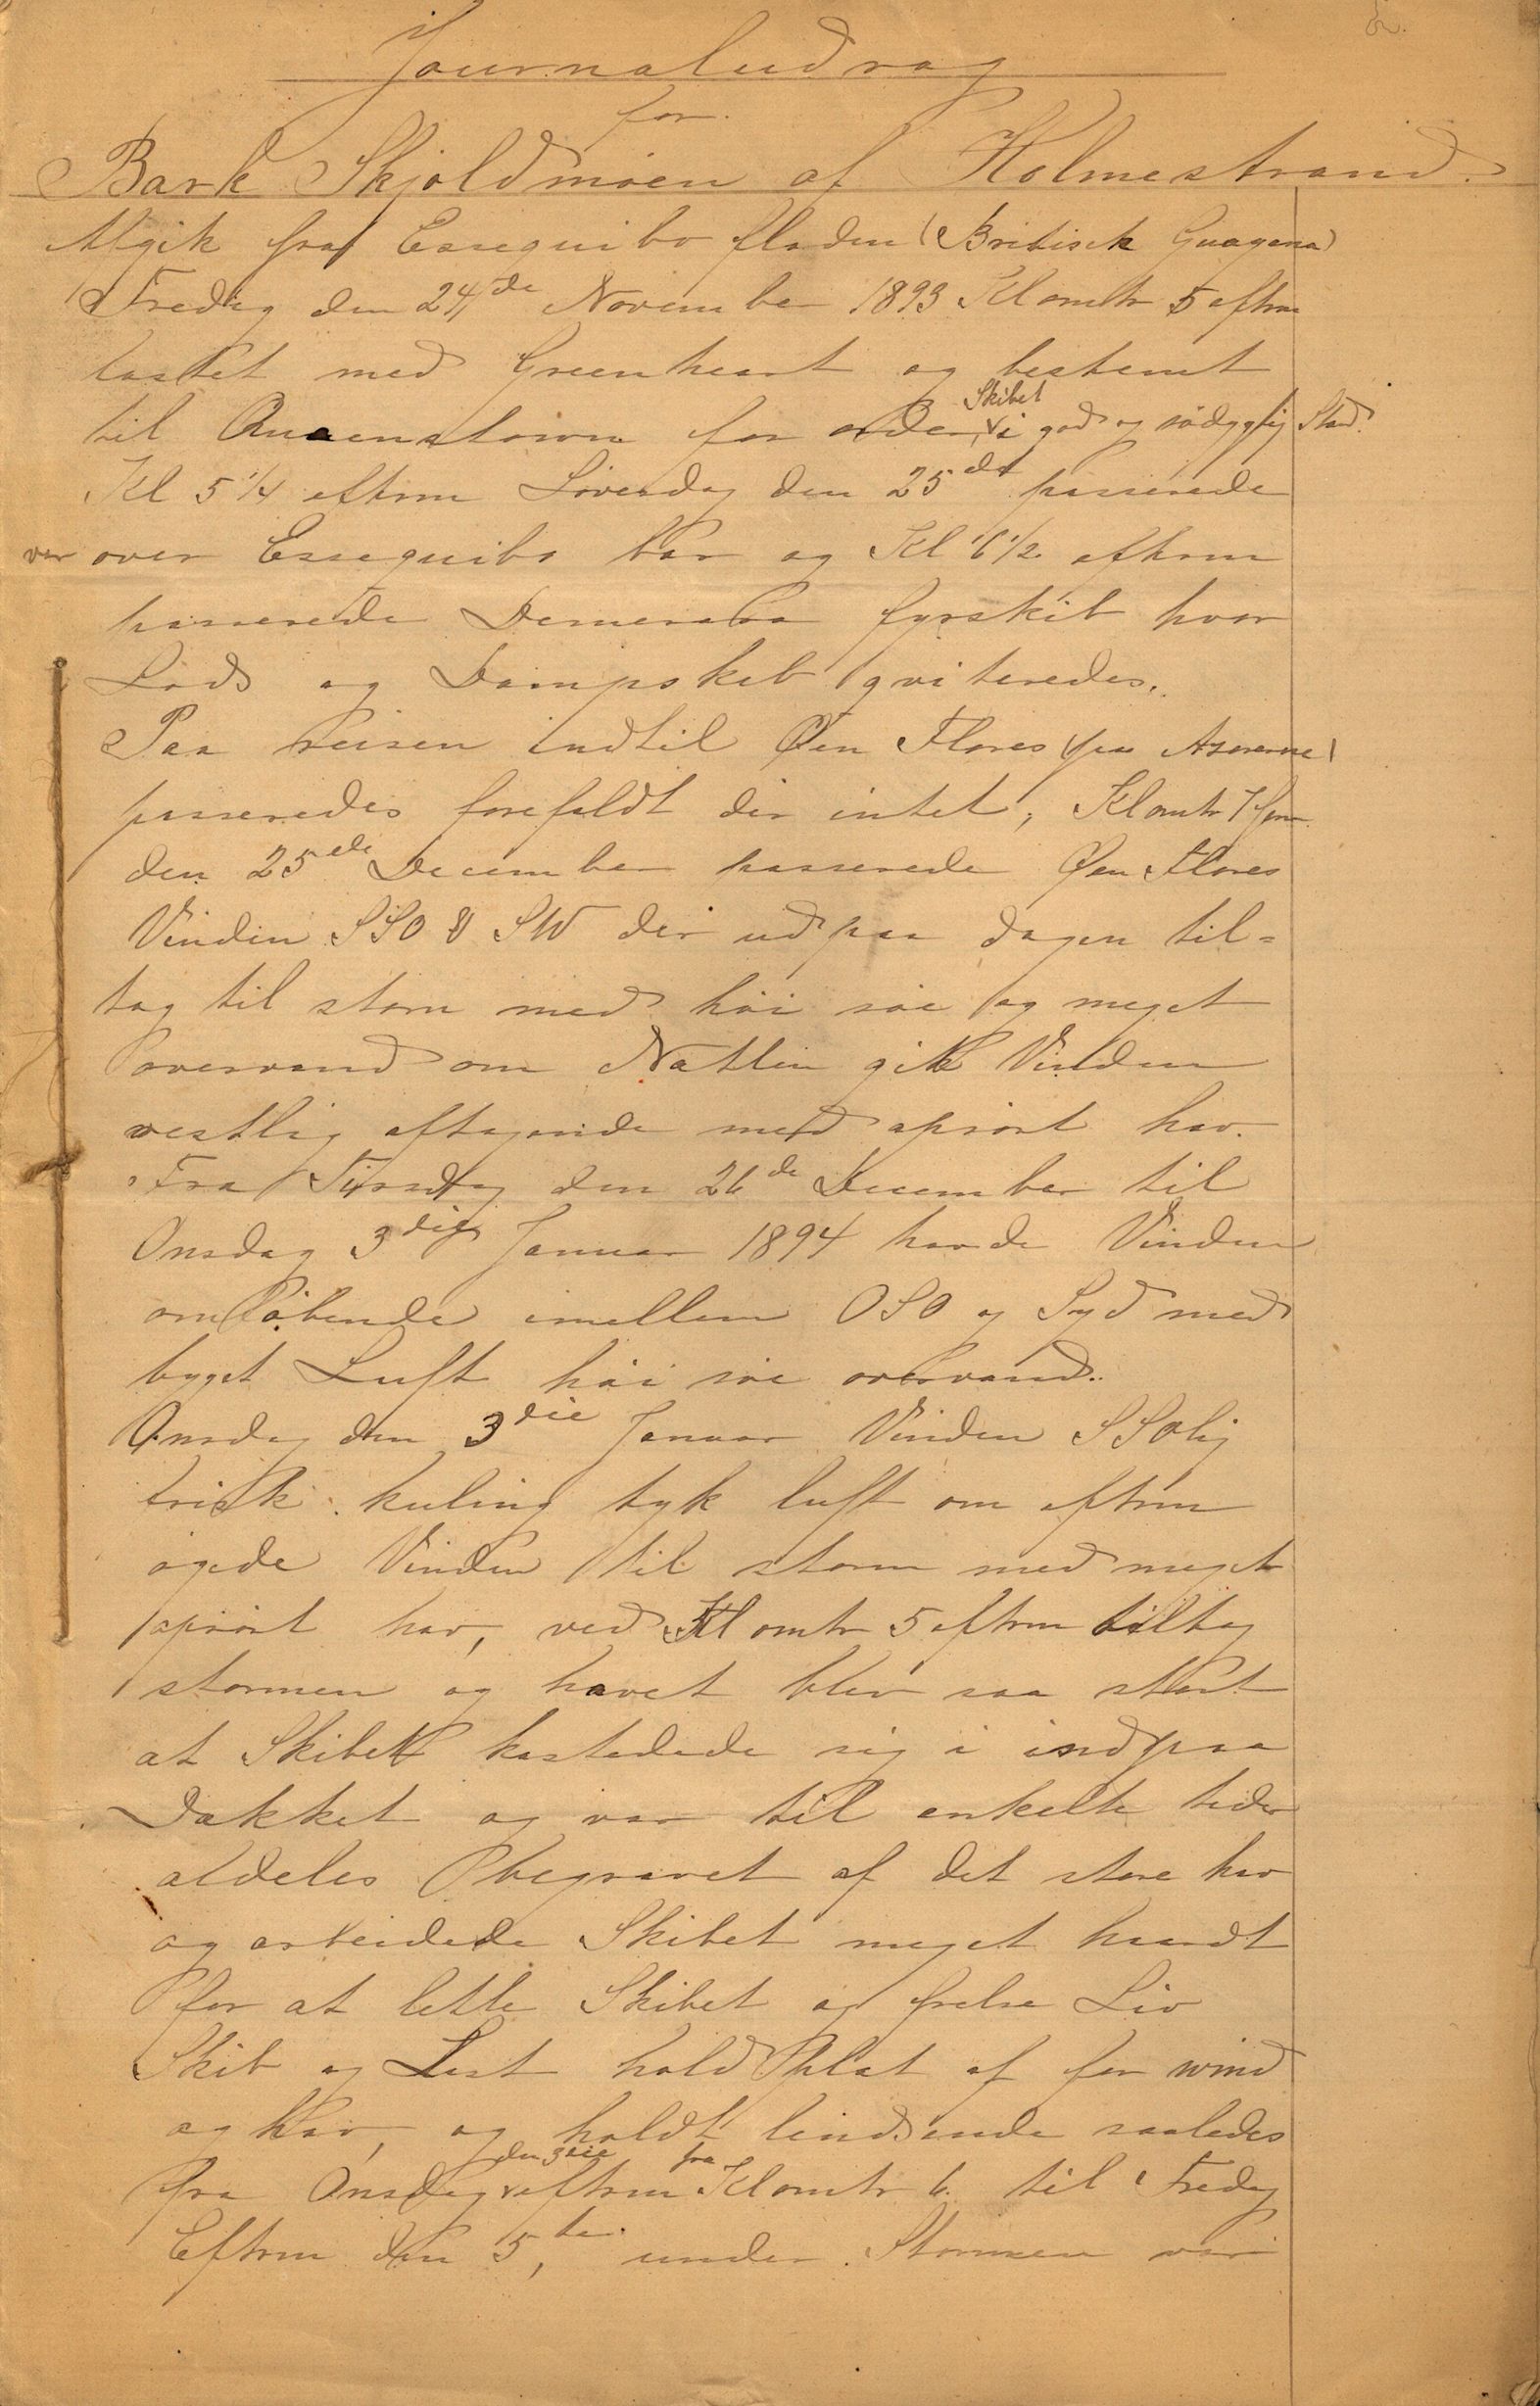 Journaludrag
for
Bark Skjoldmöen af Holmestrand.
Afgik fra Essequibo floden (Britisk Guayana)
Fredag den 24de November 1893 Kl omtr 5 eftrm
lastet med Greenheart og bestemt
til Queenstown for order, Skibet i god og södygtig Stand.
Kl 5 1/4 eftrm Löverdag den 25de passerede
over Essequibo bar og Kl 6 1/2 eftrm
passerede Demerara fyrskib hvor
Lods og Dampskib qviteredes.
Paa Reisen indtil Øen Flores (paa Azorerne)
passeredes forefaldt der intet, Kl omtr 7 fm
den 25de December passerede Øen Flores
Vinden SSO & SW der ud paa dagen til=
tog til storm med höi söe og meget
overvand om Natten gik Vinden
vestlig aftagende med oprört hav.
Fra Tirsdag den 26de December til
Onsdag 3die Januar 1894 havde Vinden
omlöbende imellem OSO og Syd med
byget Luft höi söe overvand.
Onsdag den 3die Januar Vinden SSOlig
frisk kuling tyk luft om eftrm
ögede Vinden til storm med meget
oprört hav, ved Kl omtr 5 eftrm tiltog
stormen og havet blev saa stort
at Skibet kastedede sig i ind paa
Dækket og var til enkelte tider
aldeles begravet af det store hav
og arbeidede Skibet meget haardt
for at lette Skibet og frelse Liv
Skib og Last hold plat af for wind
og Hav, og holdt lindsende saaledes
fra Onsdag den 3die eftrm fra Kl omtr 6 til Fredag
Eftrm den 5te, under Stormen var